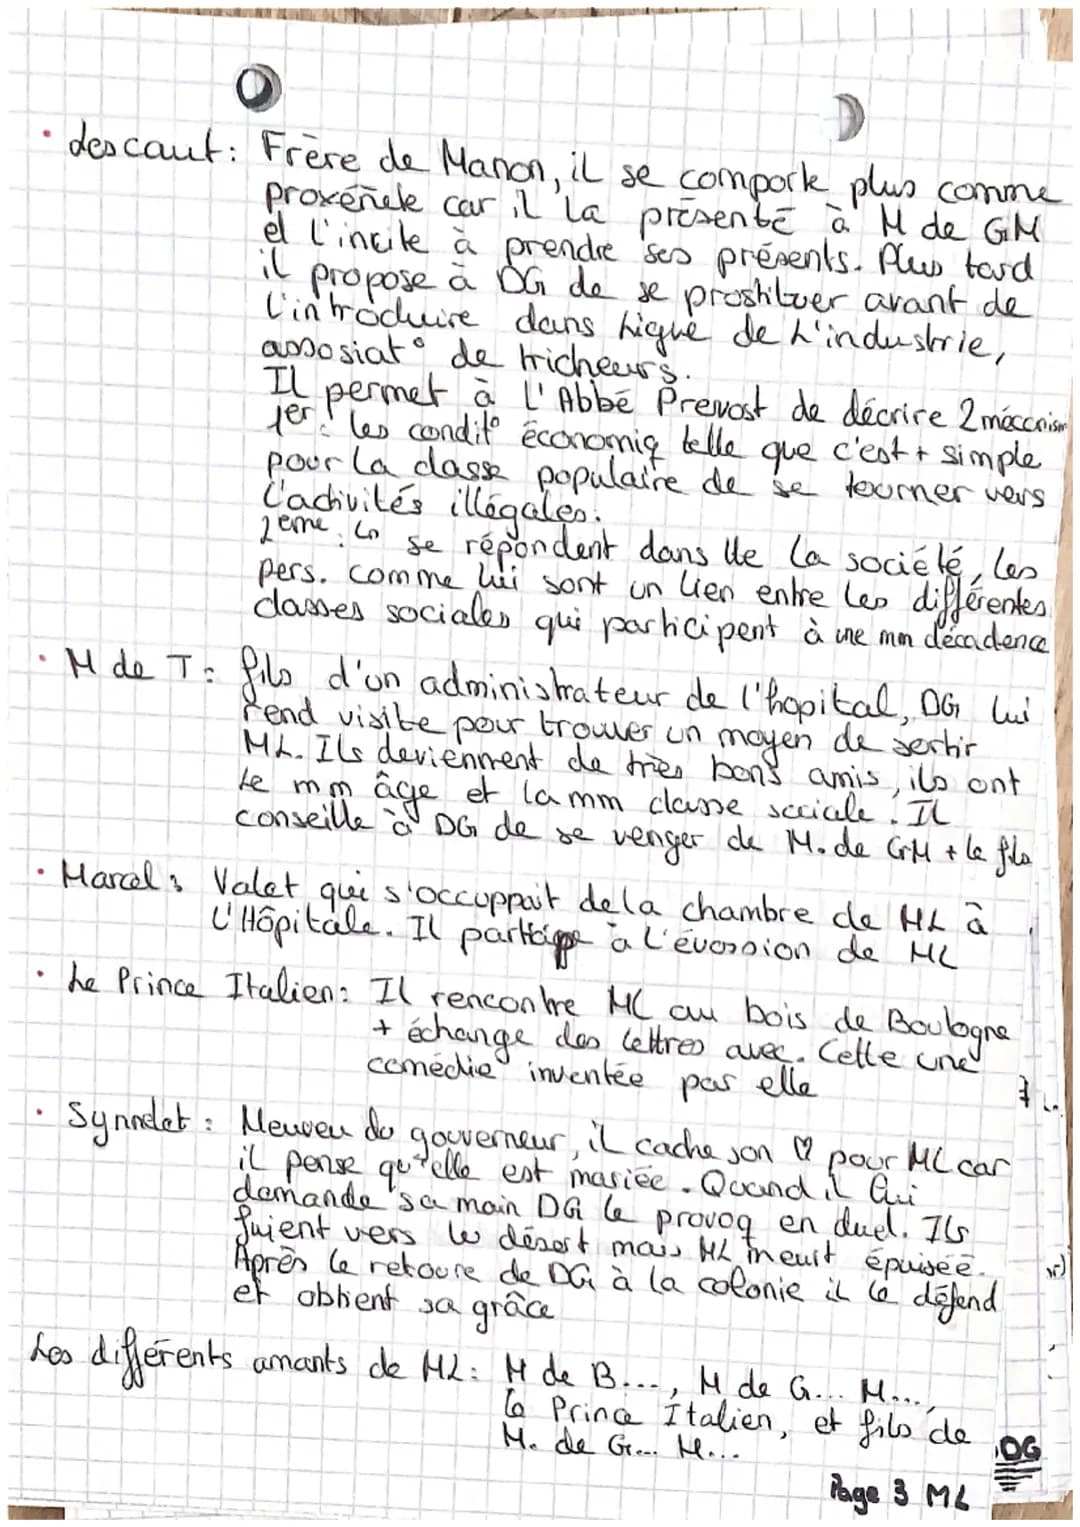 • Lescaut : Frère de Manon, il se comporte plus comme
proxénète car il la présenté à M de GM
et l'incite à prendre ses présents. Plus tard
il propose à DG de se prostituer avant de
l'introduire dans Ligue de L'industrie,
assosiat° de tricheurs.
Il permet à l'Abbé Prevost de décrire 2 méccnism
1er : les condit° économiq telle que c'est + simple
pour la classe populaire de se tourner vers
l'activités illégales.
2eme : Ls se répondent dans tte la société, les
pers. comme lui sont un lien entre les différentes
classes sociales qui participent à une mm décadence
• M de T : fils d'un administrateur de l'hopital, DG lui
rend visite pour trouver un moyen de sortir
ML. Ils deviennent de très bons amis, ils ont
le mm âge et la mm classe sociale. Il
conseille à DG de se venger de M. de GM + le fils
• Marcel : Valet qui s'occuppait de la chambre de ML à
L'Hôpitale. Il participe à l'évossion de ML
• Le Prince Italien : Il rencontre ML au bois de Boulogne
+ échange des lettres avec. Cette une
comédie inventée par elle
• Synnelet : Neuveu du gouverneur, il cache son ♡ pour ML car
il pense qu'elle est mariée. Quand il lui
demande sa main DG le provoq en duel. Ils
fuient vers le désert mais ML meurt épuisée.
Après le retoure de DG à la colonie il le défend
et obtient sa grâce
Les différents amants de ML : M de B..., M de G... M...,
le Prince Italien, et fils de
M. de G... M...
DG
Page 3 ML